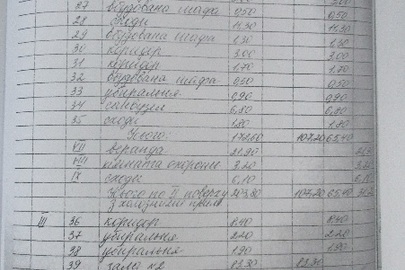 27 вбудована шафа 0,50 0,50
28 сходи 11,30 11,30
29 вбудована шафа 1,30 1,30
30 коридор 3,00 3,00
31 коридор 1,70 1,70
32 вбудована шафа 0,50 0,50
33 убиральня 0,90 0,90
34 6,80 6,80
35 сходи 1,80 1,80
Усього 172,60 107,20 65,40
VII веранда 21,90
VIII кімната охорони 3,20
IX сходи 6,10
Усього по II поверху 203,80 107,20 65,40
з холодними прим.
III 36 коридор 8,40 8,40
37 убиральня 2,20 2,20
38 убиральня 1,90 1,90
39